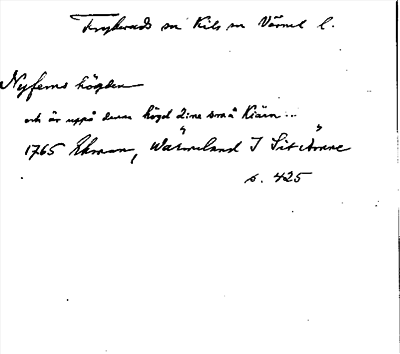 Fryksände sn Kils sn Värml l.
Nyfems högden
och är uppå denna högd 2:ne små Kiärn...
1765 Ekman, Wärmeland I Sit ämne
s. 425